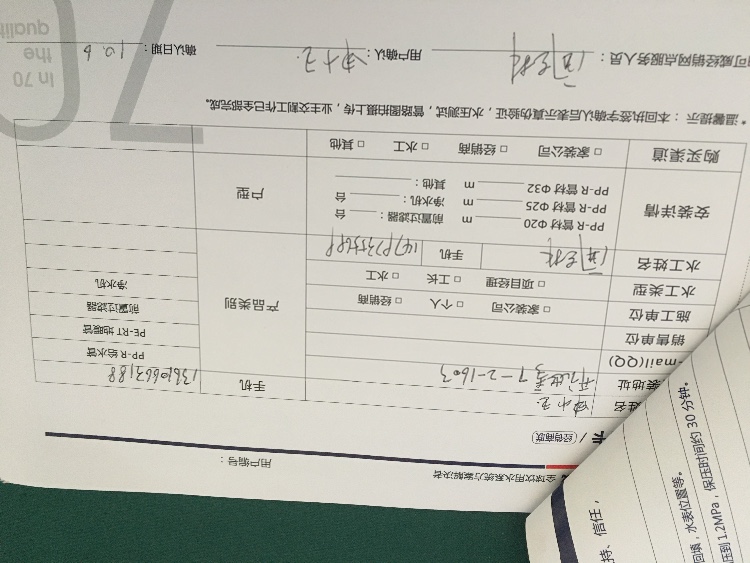 全球饮用水系统方案解决者
用户编号：
卡 / 经销商联
姓名
手机 13810663188
装地址 7-2-1603
-mail(QQ)
销售单位
施工单位 □ 家装公司 □ 个人 □ 经销商
水工类型 □ 项目经理 □ 工长 □ 水工
水工姓名 手机
产品类别
PP-R 给水管
PE-RT 地暖管
前置过滤器
净水机
安装详情
PP-R 管材 Φ20 m 前置过滤器： 台
PP-R 管材 Φ25 m 净水机： 台
PP-R 管材 Φ32 m 其他：
户型
购买渠道 □ 家装公司 □ 经销商 □ 水工 □ 其他
* 温馨提示：本回执签字确认后表示真伪验证，水压测试，管路图拍摄上传，业主交割工作已全部完成。
司威经销网点服务人员： 用户确认： 确认日期： 10.6
In 70
the
qualit
持、信任，
回填，水表位置等。
压到 1.2MPa，保压时间约 30 分钟。